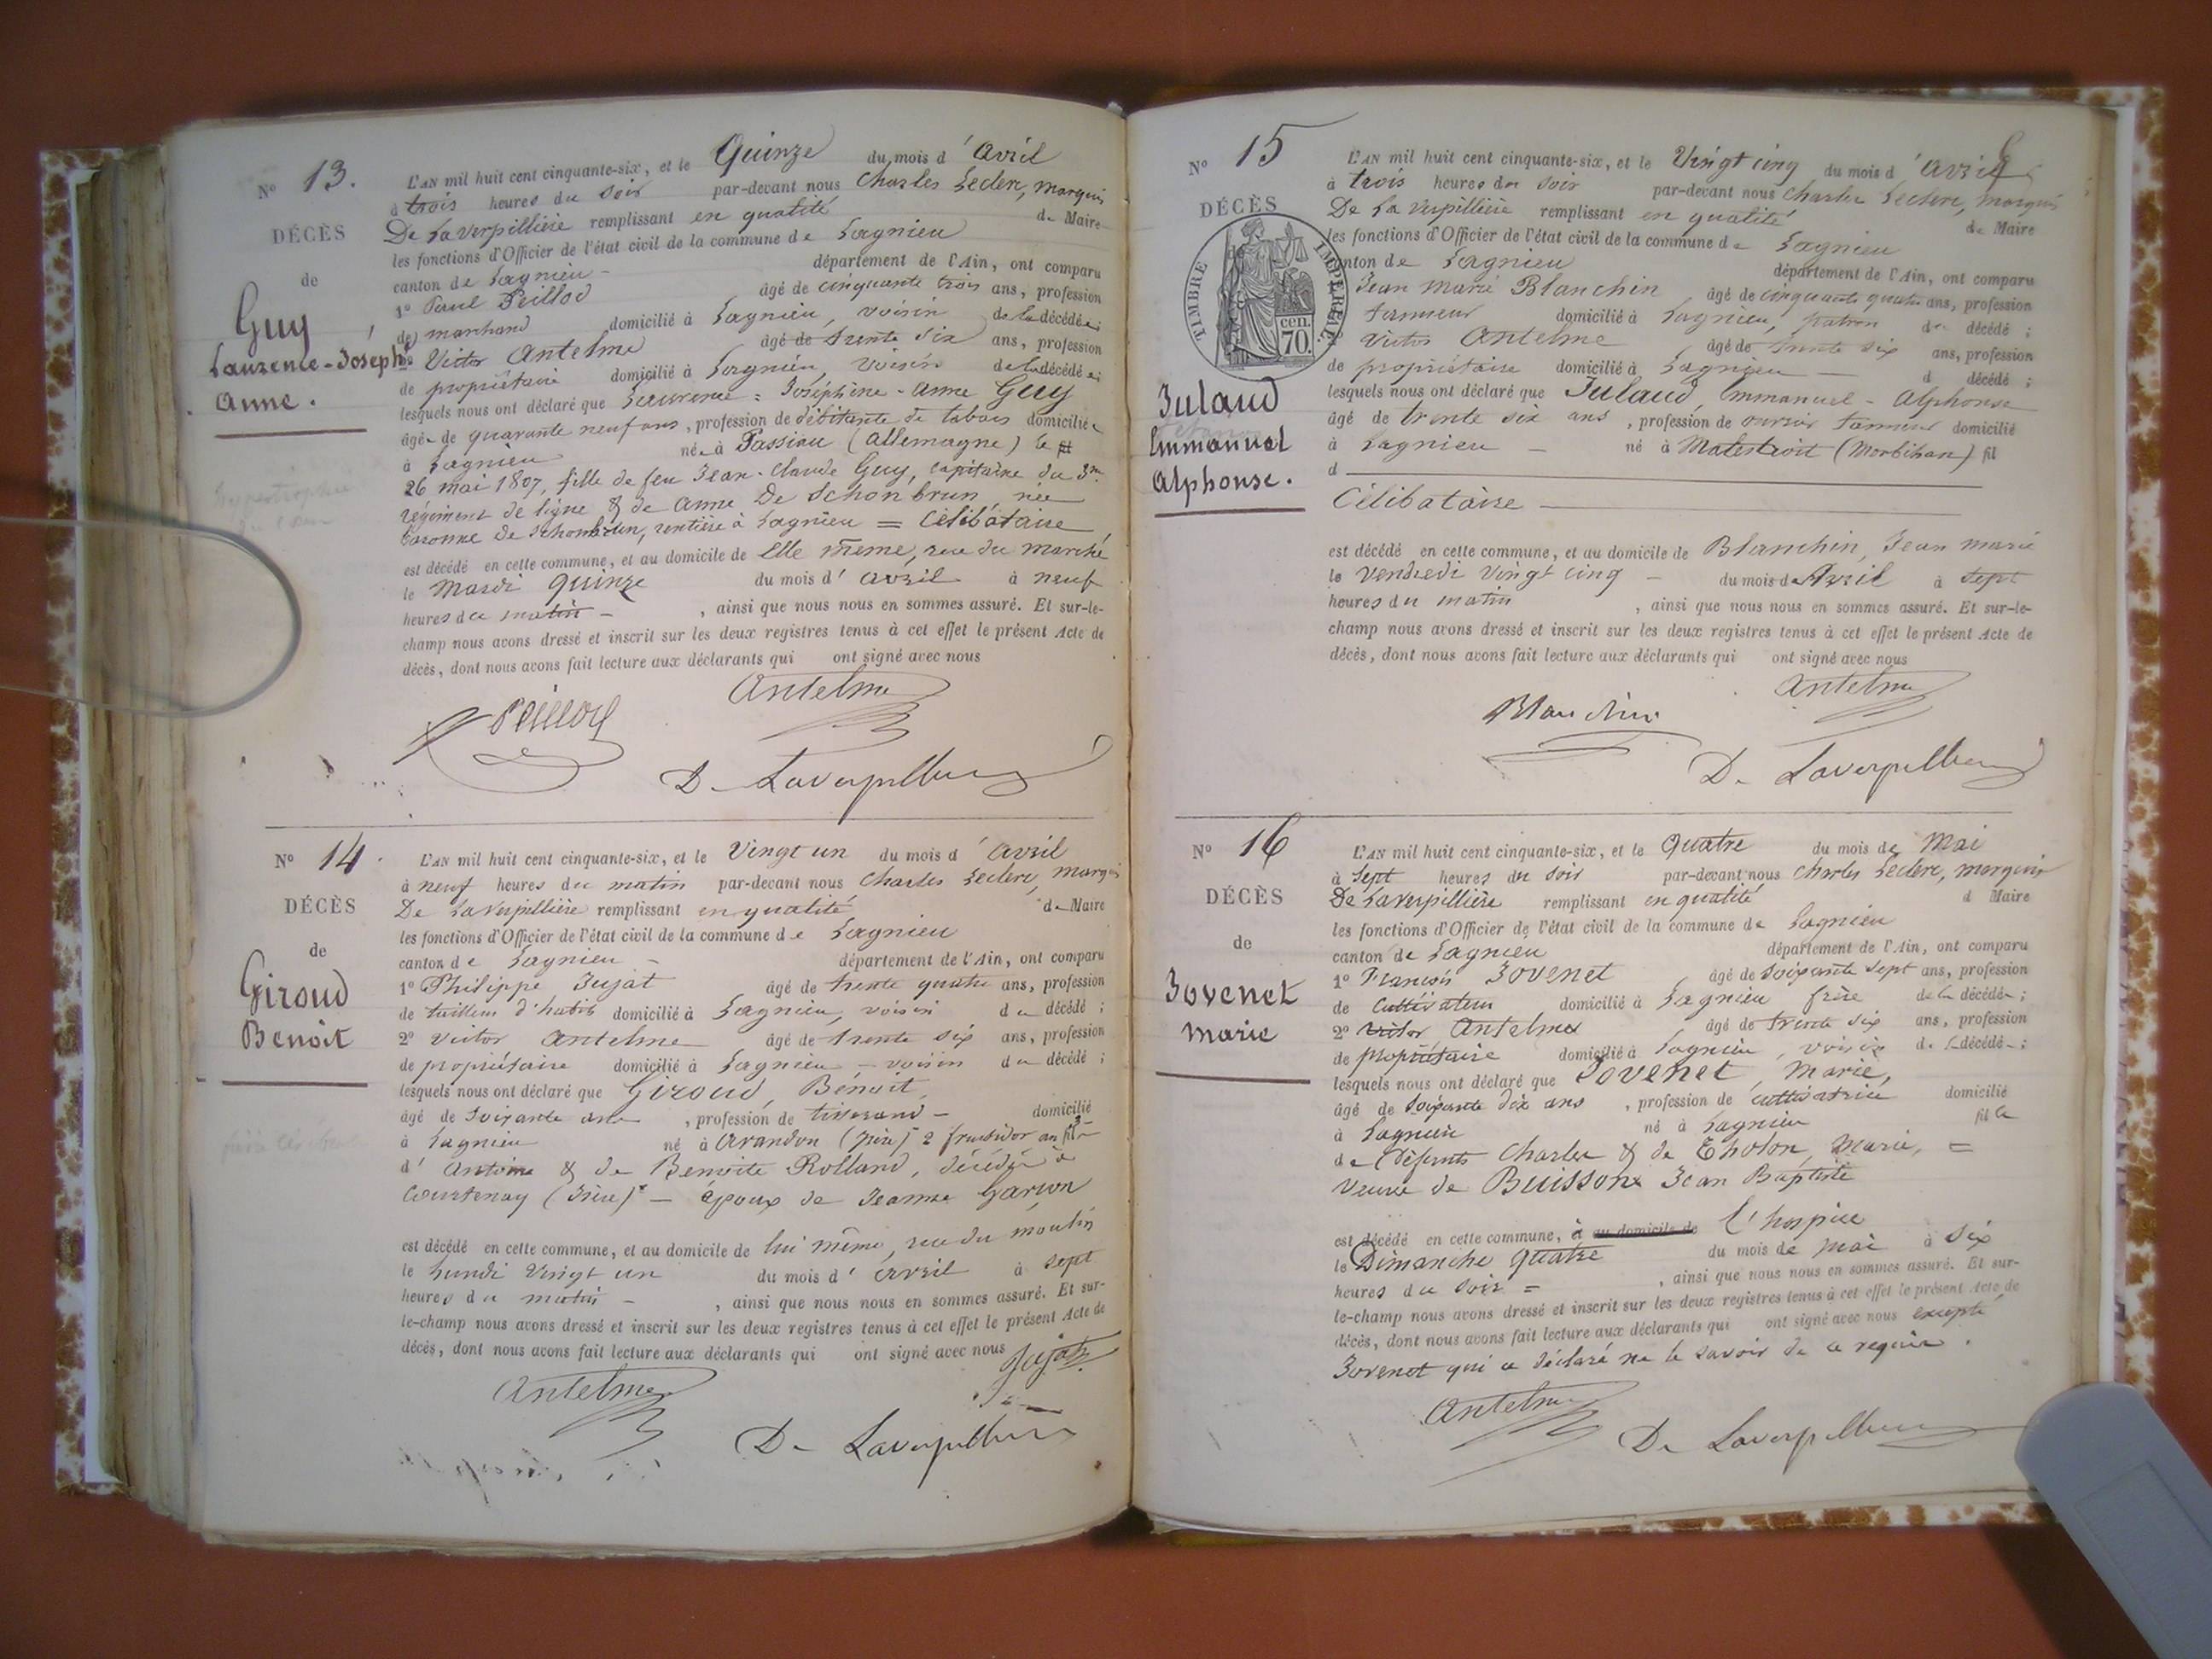 N° 13.
DÉCÈS
de
Guy
Laurence-Joséph
Anne.
L'AN mil huit cent cinquante-six, et le Quinze du mois d'Avril
à trois heures du soir par-devant nous Charles Leclerc, marquis
De Laverpillière remplissant en qualité de Maire
les fonctions d'Officier de l'état civil de la commune de Lagnieu
canton de Lagnieu - département de l'Ain, ont comparu
1° Paul Peillod âgé de cinquante trois ans, profession
de marchand domicilié à Lagnieu, voisin de la décédée;
2° Victor Antelme âgé de trente six ans, profession
de propriétaire domicilié à Lagnieu, voisin de la décédée;
lesquels nous ont déclaré que Laurence = Joséphine - Anne Guy
âgée de quarante neuf ans, profession de débitante de tabacs domiciliée
à Lagnieu née à Passiau (Allemagne) le
26 mai 1807, fille de feu Jean-Claude Guy, capitaine du 3me
régiment de ligne & de Anne De Schonbrun née
baronne de Schonbrun, rentière à Lagnieu = Célibataire
est décédé en cette commune, et au domicile de Elle même, rue du marché
le Mardi quinze du mois d'avril à neuf
heures du matin - , ainsi que nous nous en sommes assuré. Et sur-le-
champ nous avons dressé et inscrit sur les deux registres tenus à cet effet le présent Acte de
décès, dont nous avons fait lecture aux déclarants qui ont signé avec nous
Peillod Antelme
De Laverpillière
N° 14.
DÉCÈS
de
Giroud
Benoit
L'AN mil huit cent cinquante-six, et le Vingt un du mois d'avril
à neuf heures du matin par-devant nous Charles Leclerc, marquis
De Laverpillière remplissant en qualité de Maire
les fonctions d'Officier de l'état civil de la commune de Lagnieu
canton de Lagnieu - département de l'Ain, ont comparu
1° Philippe Jujat âgé de trente quatre ans, profession
de tailleur d'habits domicilié à Lagnieu, voisin du décédé;
2° Victor Antelme âgé de trente six ans, profession
de propriétaire domicilié à Lagnieu - voisin du décédé;
lesquels nous ont déclaré que Giroud, Benoit,
âgé de soixante ans, profession de tisserand - domicilié
à Lagnieu né à Arandon (isère) 2 fructidor an 3 fils
d'Antoine & de Benoite Rolland, décédés à
Courtenay (Isère) - époux de Jeanne Garion
est décédé en cette commune, et au domicile de lui même, rue du moulin
le Lundi Vingt un du mois d'avril à sept
heures du matin - , ainsi que nous nous en sommes assuré. Et sur-
le-champ nous avons dressé et inscrit sur les deux registres tenus à cet effet le présent Acte de
décès, dont nous avons fait lecture aux déclarants qui ont signé avec nous Jujat
Antelme
De Laverpillière
N° 15
DÉCÈS
TIMBRE IMPÉRIAL
cen.
70.
Julaud
Emmanuel
Alphonse.
L'AN mil huit cent cinquante-six, et le Vingt cinq du mois d'avril
à trois heures du soir par-devant nous Charles Leclerc, marquis
De La Verpillière remplissant en qualité de Maire
les fonctions d'Officier de l'état civil de la commune de Lagnieu
canton de Lagnieu département de l'Ain, ont comparu
Jean Marie Blanchin âgé de cinquante quatre ans, profession
tanneur domicilié à Lagnieu, patron du décédé;
Victor Antelme âgé de trente six ans, profession
de propriétaire domicilié à Lagnieu - d décédé;
lesquels nous ont déclaré que Julaud, Emmanuel - Alphonse
âgé de trente six ans, profession de ouvrier tanneur domicilié
à Lagnieu - né à Malestroit (Morbihan) fil
d
Célibataire
est décédé en cette commune, et au domicile de Blanchin, Jean Marie
le Vendredi vingt cinq - du mois d'Avril à sept
heures du matin , ainsi que nous nous en sommes assuré. Et sur-le-
champ nous avons dressé et inscrit sur les deux registres tenus à cet effet le présent Acte de
décès, dont nous avons fait lecture aux déclarants qui ont signé avec nous
Blanchin Antelme
De Laverpillière
N° 16
DÉCÈS
de
Jovenet
Marie
L'AN mil huit cent cinquante-six, et le Quatre du mois de Mai
à Sept heures du soir par-devant nous Charles Leclerc, marquis
De Laverpillière remplissant en qualité d Maire
les fonctions d'Officier de l'état civil de la commune de Lagnieu
canton de Lagnieu département de l'Ain, ont comparu
1° François Jovenet âgé de soixante sept ans, profession
de cultivateur domicilié à Lagnieu frère de la décédée;
2° Victor Antelme âgé de trente six ans, profession
de propriétaire domicilié à Lagnieu, voisin de la décédée;
lesquels nous ont déclaré que Jovenet, Marie,
âgé de soixante dix ans, profession de cultivatrice domicilié
à Lagnieu né à Lagnieu fille
de défunts Charles & de Tholon, Marie, =
Veuve de Buisson Jean Baptiste
est décédé en cette commune, à au domicile de l'hospice
le Dimanche quatre du mois de mai à six
heures du soir = , ainsi que nous nous en sommes assuré. Et sur-
le-champ nous avons dressé et inscrit sur les deux registres tenus à cet effet le présent Acte de
décès, dont nous avons fait lecture aux déclarants qui ont signé avec nous excepté
Jovenet qui a déclaré ne le savoir de ce requis.
Antelme
De Laverpillière